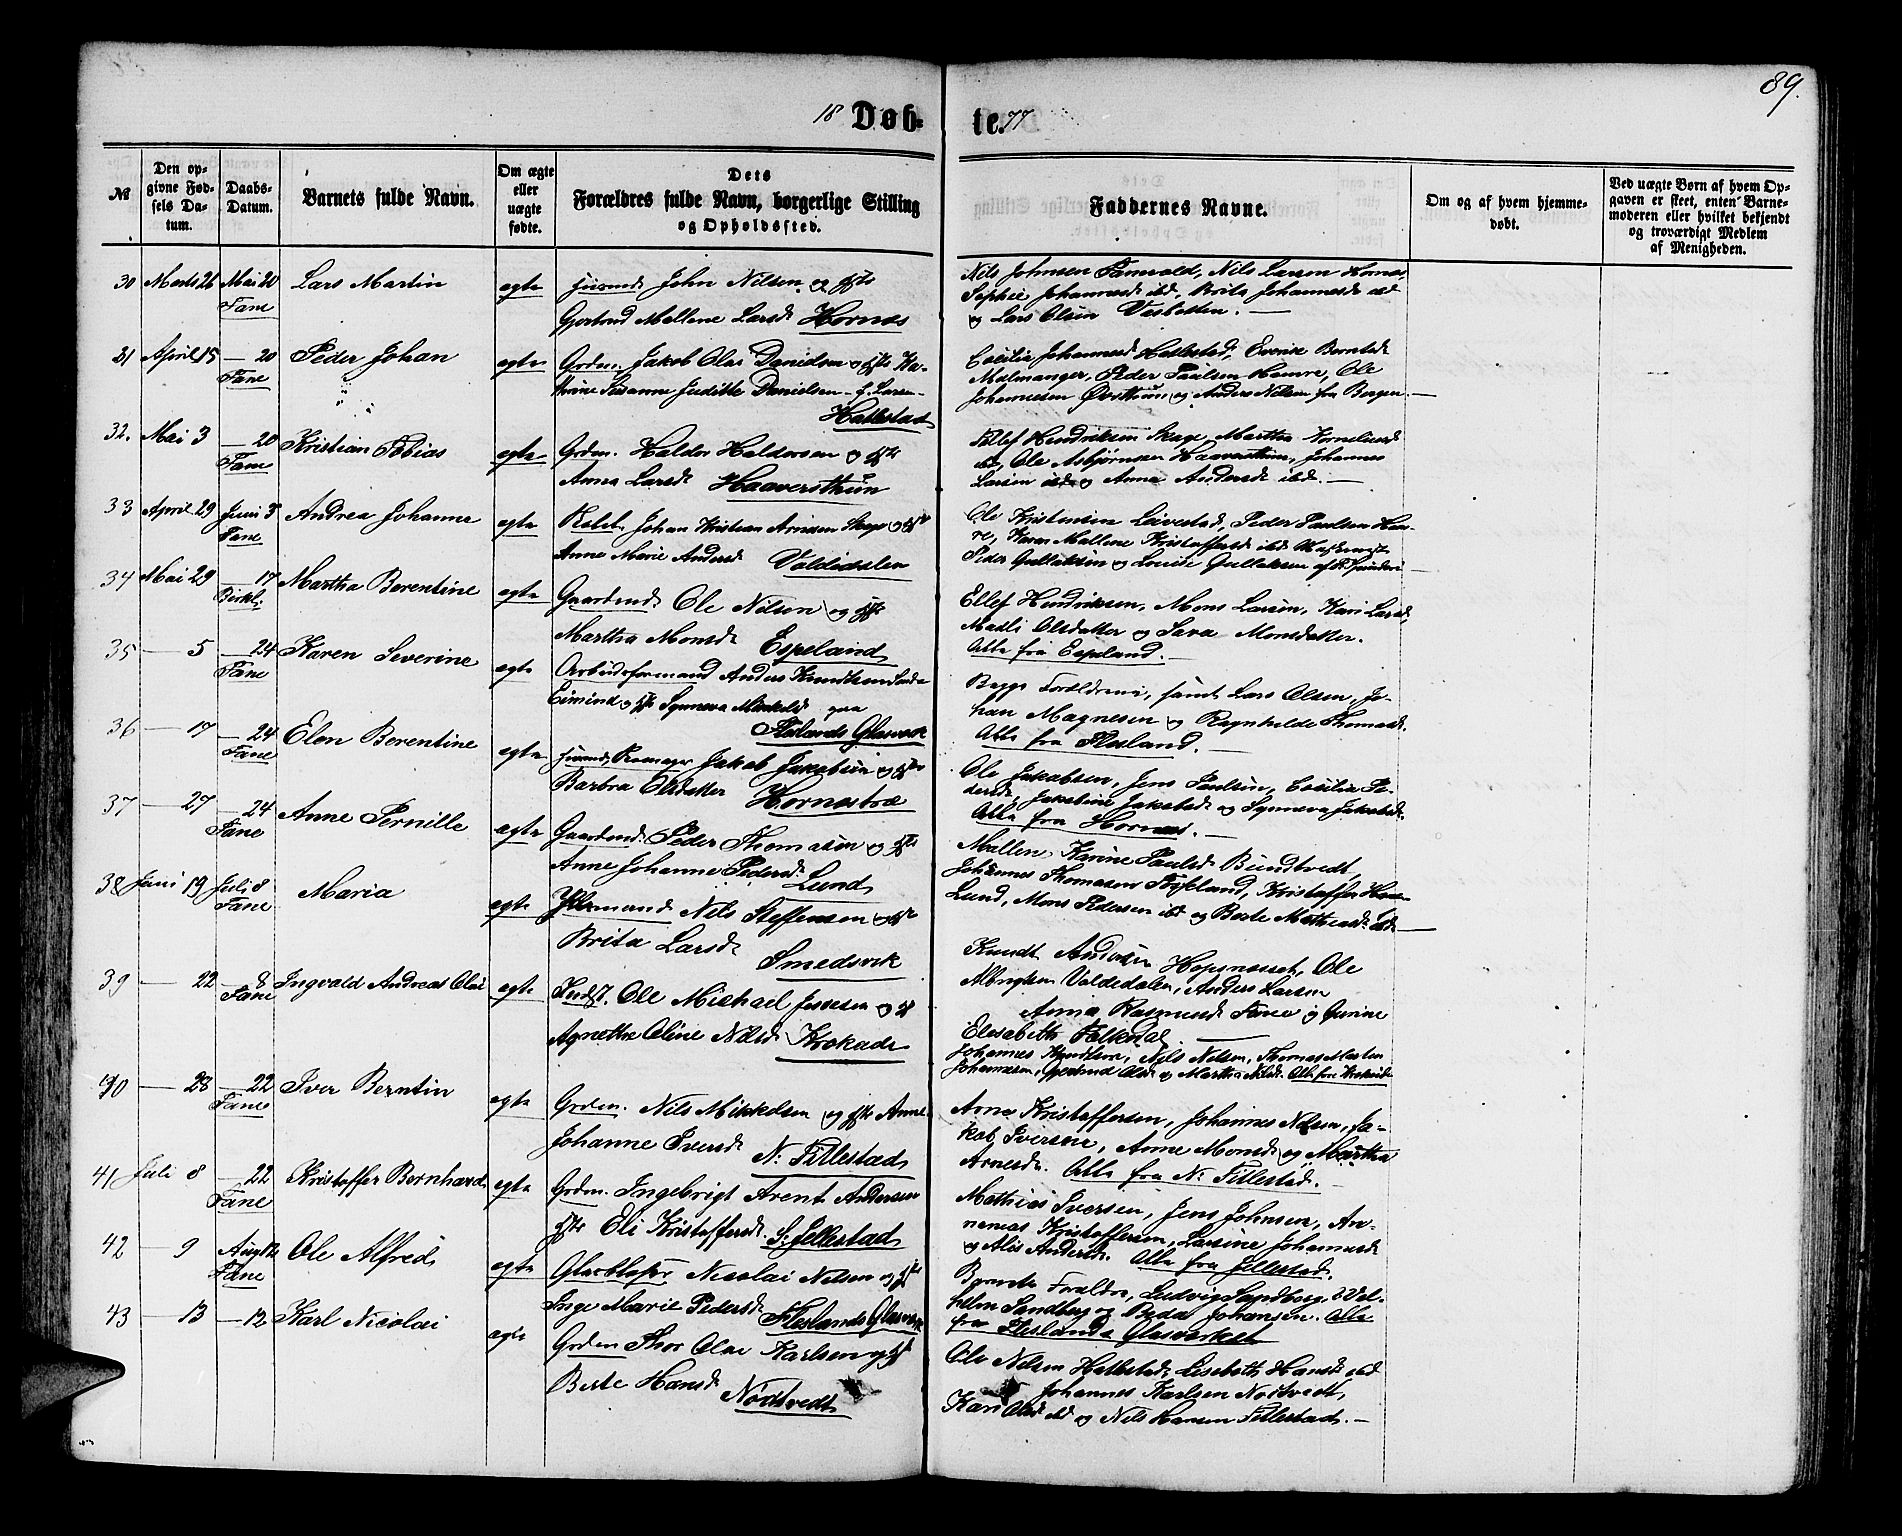 89.
18 Døb- te. 77
№
Den opgivne Fødsels Datum.
Daabs-Datum.
Barnets fulde Navn.
Om ægte eller uægte fødte.
Dets Forældres fulde Navn, borgerlige Stilling og Opholdssted.
Faddernes Navne.
Om og af hvem hjemmedøbt.
Ved uægte Børn af hvem Opgaven er skeet, enten Barnemoderen eller hvilket bekjendt og troværdigt Medlem af Menigheden.
30 Marts 26 Mai 20 Lars Martin egte John Nilsen og
Fane Gjertrud Mallene Larsd. Hornæs
Nils Johnsen Nils Larsen Hornæs,
Sophie Johannesd. ibd, Brita Johannesd. ibd
og Lars Olsen
31 April 15 — 20 Peder Johan egte Grdm. Jakob Olai Danielsen og Ka-
Fane Susanne Judithe Danielsen f. Larsen
Hatlestad
Cecilia Johannesd. Hatlestad, Berntsd.
Malmanger, Peder Paulsen Hamre, Ole
Johannesen og Anders Nilsen fra Bergen. —
32. Mai 3 — 20 Kristian Tobias egte Grdm. Haldor Haldorsen og
Fane Anna Larsd. Haaversthun
Ellef Hendriksen Skage, Martha Korneliusd.
ibd, Ole Asbjørnsen Haaversthun, Johannes
Larsen ibd og Anna Andersd. ibd. —
33 April 29 Juni 3 Andrea Johanne egte Johan Kristian Arnesen og
Fane Anne Marie Andersd. Valdidalen
Ole Kristensen Leivestad, Peder Paulsen Ham-
re, Karen Mallene Kristoffersd. ibd
Peder Gullaksen og Lovise Gullaksen
34 Mai 29 — 17 Martha Berentine egte Gaardmd. Ole Nilsen og
Birkl. Martha Monsd. Espeland
Ellef Hendriksen, Mons Larsen, Kari Larsd,
Madli Olsdatter og Sara Monsdatter.
Alle fra Espeland. —
35 — 5 — 24 Karen Severine egte Arbeidsformand Anders Knudsen
Fane Eimind og Synneva Mikkelsd. paa
Fleslands Glasverk
Begge Forældrene, samt Lars Olsen, Jo-
han Magnesen og Ragnhilde Thomasd.
Alle fra Flesland. —
36 — 17 — 24 Elen Berentine egte Jakob Jakobsen og
Fane Barbra Olsdatter Hornæstræ
Ole Jakobsen, Jens Paulsen, Cecilia Pe-
dersd, Jakobine Jakobsd. og Synneva Jakobsd.
Alle fra Hornæs. —
37 — 27 — 24 Anne Pernille egte Gaardmd. Peder Thomasen og
Fane Anne Johanne Pedersd. Lund
Mallene Karine Paulsd. Bundtvedt,
Johannes Thomasen Kristoffer
Lund, Mons Pedersen ibd og Berte Mathiasd. ibd. —
38 Juni 19 Juli 8 Maria egte Nils Steffensen og
Fane Brita Larsd. Smedsvik
Knudt Andersen Hopsnesset, Ole
Albrigtsen Valdedalen, Anders Larsen
Anna Rasmusd. Fane og Gurine
Elisabeth
39 — 22 — 8 Ingvald Andreas Olai egte Ole Michael Jensen og
Fane Agnethe Oline Nilsd. Krokade
Johannes Knudsen, Nils Nilsen, Thomas
Johannesen, Gjertrud Olsd. og Martha Nilsd. Alle fra Krokeide
40 — 28 — 22 Iver Berntin egte Grdm. Nils Mikkelsen og Anne
Fane Johanne Iversd. N. Titlestad
Arne Kristoffersen, Johannes Nilsen, Ja-
kob Iversen, Anne Monsd. og Martha
Arnesd. Alle fra N. Titlestad. —
41 Juli 8 — 22 Kristoffer Bernhard egte Grdm. Ingebrigt Arent Andersen
Fane Eli Kristoffersd. S. Titlestad
Mathias Iversen, Jens Johnsen, An-
Kristoffersen, Larsine Johannesd.
og Alis Andersd. Alle fra Titlestad.
42 — 9 Aug. 12 Ole Alfred egte Glasblaser Nicolai Nilsen og
Fane Inge Marie Pedersd. Fleslands Glasverk
Barnets Forældre, Ludvig Sandberg, Vil-
helm Sandberg og Johansen. Alle
fra Fleslands Glasverket
43 — 13 — 12 Karl Nicolai egte Grdm. Thor Olai Karlsen og
Berte Hansd. Nødtvedt
Ole Nilsen Hatlestad, Lisebeth Hansd. ibd
Johannes Karlsen Nødtvedt,
Kari Olsd ibd og Nils Hansen Titlestad. —